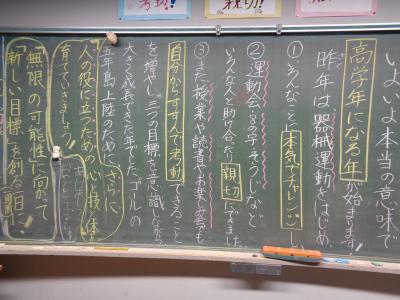 考動！
親切！
いよいよ本当の意味で
高学年になる年が始まります！
昨年は、器械運動をはじめ、
①いろんなことに本気でチャレンジし、
②運動会・8の字・そうじなど
いろんな人と助け合ったり親切にできました。
③また、授業や読書やお楽しみ会でも
自分からすすんで考動できること
を増やし、三つの目標を意識しながら
大きく成長できた年でした。ゴールの
五年島上陸のために、さらに
人の役に立つための心と技と体を
育てていきましょう！
「無限の可能性」に向かって
「新しい目標」を創る一日に！